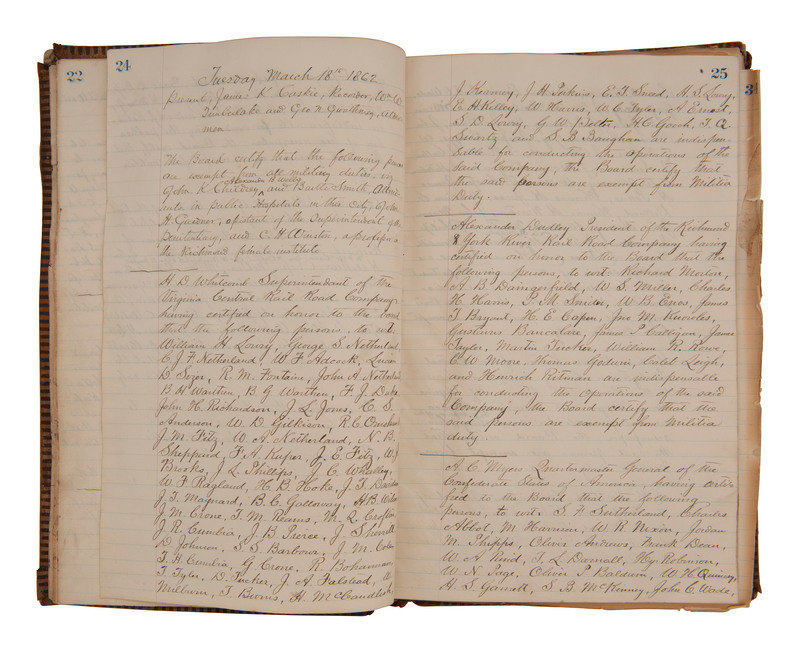 22
24
Tuesday March 18th 1862
Present, James K Caskie, Recorder, Wm W
Timberlake and Geo N Gwathmey, Alder
men
The Board certify that the following persons
are exempt from all military duties viz
John K Childrey, Alexander B and Battle Smith, attend
ants in public Hospitals in this City, John
H. Gusner, assistant of the Superintendent of the
Penitentiary, and C. H Winston, a professor in
the Richmond female institute
H D Whitcomb Superintendent of the
Virginia Central Rail Road Company
having certified on honor to the board
that the following persons, to wit:
William H Lowry, George S Netherland
C J F Netherland W F Adcock, Lucian
D R. M. Fontaine, John A Netherland
B. H Warthen, B G Warthen, F. J. Duke
John H. Richardson, J. L Jones, C. S.
Anderson, W. D Gilkison, R. C.
J. M. Fitz, W. A. Netherland, N. B.
Sheppard, F A Kuper, J. E. Fitz, W J
Brooks, J. L. Phillips, J. C. Whadley,
W F Ragland, H. B. Hoke, J. T.
J. T. Maynard, B. C. Galloway, H B
J. M. Crone, T. M. Reams, M. L. Crofton
J. R. Cumbia, J. B. Pierce, J. Sherrill
D Johnson, S. S. Barbour, J. M.
T. H. Cumbia, G. Crone, R. Bohannon
T. Tyler, D. Tucker, J. A. Falstead, W
Milburn, T. Burns, H. McCandlish
25
31
J. Kearney, J. H Perkins, E. T. Sneed, H. S. Lowry,
E H Kelley, W. Harris, W. C. Tyler, A Ernest,
S. D. Lowry, G. W. H. C. Gooch, T. A.
Swartz and S. B. Baughan are indispen-
sible for conducting the operations of the
said Company, the Board certify that
the said persons are exempt from Militia
Duty.
Alexander Dudley President of the Richmond
& York River Rail Road Company having
certified on honor to the Board that the
following persons, to wit: Richard Morton,
A. B Daingerfield, W. S. Miller, Charles
H. Harris, P. M. Snider, W. B. Enos, James
T Bryant, H. E. Capen, Jno M. Knowles,
Gustavus Bancalare, James P Cattigan, James
Taylor, Martin Tucker, William R. Rowe,
C. W. Moore, Thomas Godwin, Caleb Leigh,
and Heinrich Ritman are indispensable
for conducting the operations of the said
Company, the Board certify that the
said persons are exempt from Militia
duty.
A. C. Myers Quartermaster General of the
Confederate States of America, having certi-
fied to the Board that the following
persons, to wit: S. F. Sutherland, Charles
Abbot, M. Harrison, W. R. Nixon, Jordan
M. Phipps, Oliver Andrews, Frank Dean,
W. A. Reid, T. L. Darnall, Hy Robinson,
W. N. Page, Oliver P Baldwin, W. H. Quincey,
H. S. Garrett, S B McKenney, John C. Wade,